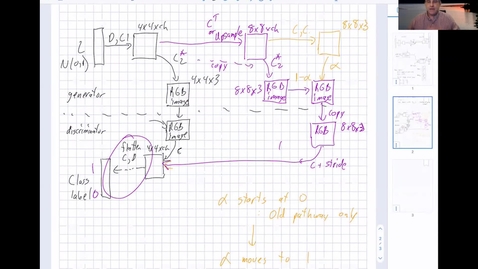 4x4xch
C^T
or Upsample
8x8xch
C,C
8x8x3
Z
D,C1
N(0,1)
C2
copy
C2
α
4x4x3
1-α
generator
RGB
image
8x8x3
RGB
image
RGB
image
copy
discriminator
RGB
image
RGB
8x8x3
flatten
C,D
4x4xch
C
1
C+stride
1
Class
label
0
α starts at 0
Old pathway only
α moves to 1